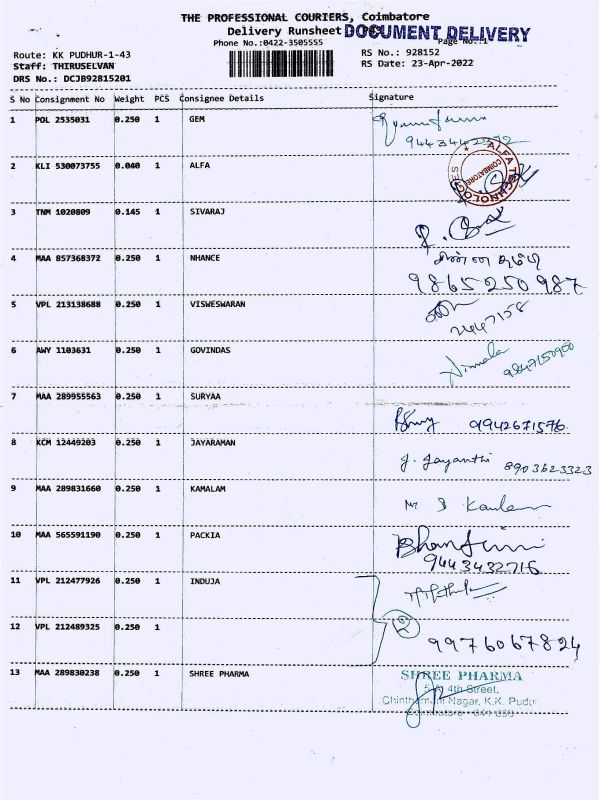 THE PROFESSIONAL COURIERS, Coimbatore
Delivery Runsheet
DOCUMENT DELIVERY
Phone No.:0422-3505555
Page No.:1
Route: KK PUDHUR-1-43
RS No.: 928152
Staff: THIRUSELVAN
RS Date: 23-Apr-2022
DRS No.: DCJB92815201
S No Consignment No Weight PCS Consignee Details Signature
1 POL 2535031 0.250 1 GEM
2 KLI 530073755 0.040 1 ALFA
ALFA TECHNOLOGIES COIMBATORE
3 TNM 1020809 0.145 1 SIVARAJ
4 MAA 857368372 0.250 1 NHANCE
9865250987
5 VPL 213138688 0.250 1 VISWESWARAN
2447158
6 AWY 1103631 0.250 1 GOVINDAS
Nirmala 9847150900
7 MAA 289955563 0.250 1 SURYAA
9942671576
8 KCM 12449203 0.250 1 JAYARAMAN
J. Jayanthi 8903623323
9 MAA 289831660 0.250 1 KAMALAM
10 MAA 565591190 0.250 1 PACKIA
9443432716
11 VPL 212477926 0.250 1 INDUJA
12 VPL 212489325 0.250 1
2
9976067824
13 MAA 289830238 0.250 1 SHREE PHARMA
SHREE PHARMA
4th Street,
Nagar, K.K. Pudur